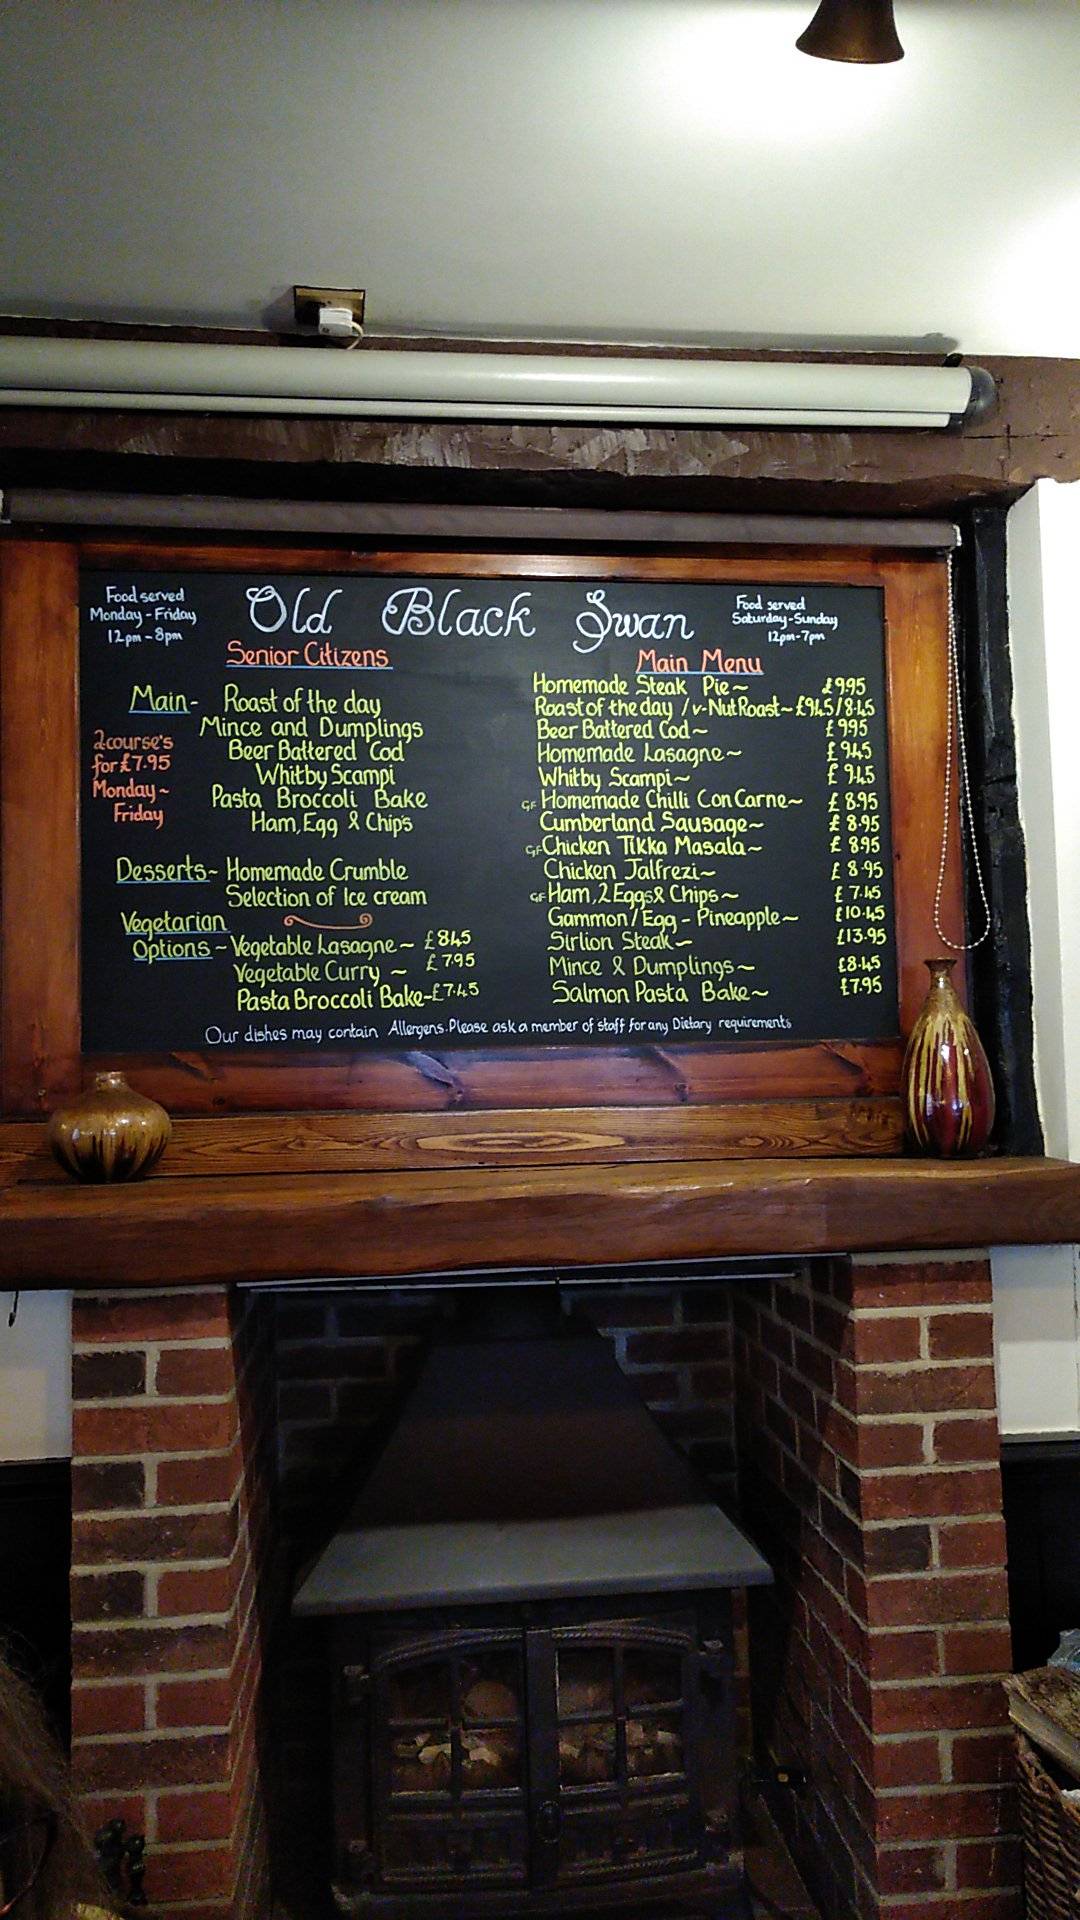 Food served
Monday - Friday
12pm - 8pm
Old Black Swan
Food served
Saturday-Sunday
12pm-7pm
Senior Citizens
Main- Roast of the day
Mince and Dumplings
Beer Battered Cod
Whitby Scampi
Pasta Broccoli Bake
Ham, Egg & Chip's
2course's
for £7.95
Monday~
Friday
Desserts~ Homemade Crumble
Selection of Ice cream
Vegetarian
Options ~ Vegetable Lasagne~ £8.45
Vegetable Curry ~ £7.95
Pasta Broccoli Bake~£7.45
Main Menu
Homemade Steak Pie~ £9.95
Roast of the day /v-Nut Roast~£9.45/8.45
Beer Battered Cod~ £9.95
Homemade Lasagne~ £9.45
Whitby Scampi~ £9.45
GF Homemade Chilli Con Carne~ £8.95
Cumberland Sausage~ £8.95
GF Chicken Tikka Masala~ £8.95
Chicken Jalfrezi~ £8.95
GF Ham, 2 Eggs & Chips~ £7.45
Gammon/Egg - Pineapple~ £10.45
Sirlion Steak~ £13.95
Mince & Dumplings~ £8.45
Salmon Pasta Bake~ £7.95
Our dishes may contain Allergens. Please ask a member of staff for any Dietary requirements